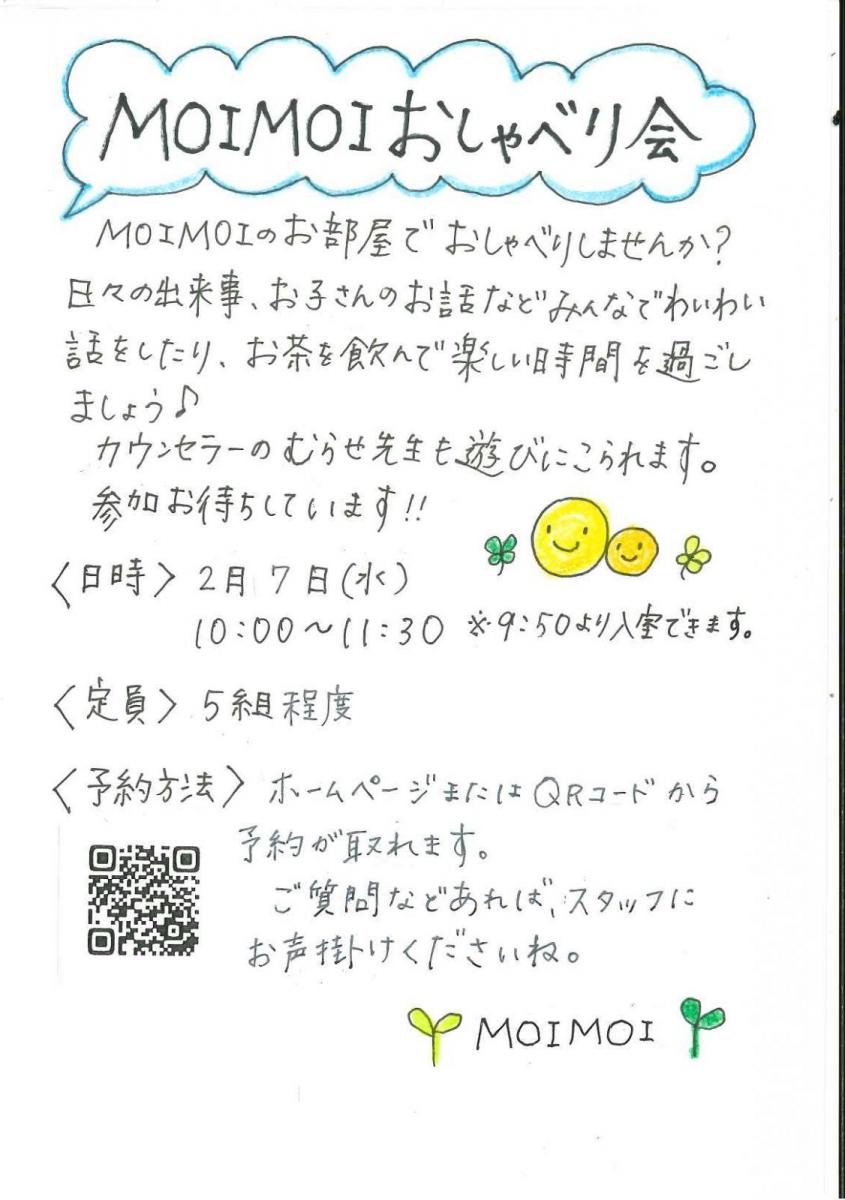 MOIMOIおしゃべり会
MOIMOIのお部屋でおしゃべりしませんか?
日々の出来事、お子さんのお話などみんなでわいわい
話をしたり、お茶を飲んで楽しい時間を過ごし
ましょう♪
カウンセラーのむらせ先生も遊びにこられます。
参加お待ちしています!!
〈日時〉 2月7日(水)
10:00~11:30 ※9:50より入室できます。
〈定員〉 5組程度
〈予約方法〉 ホームページまたはQRコードから
予約が取れます。
ご質問などあれば、スタッフに
お声掛けくださいね。
MOIMOI